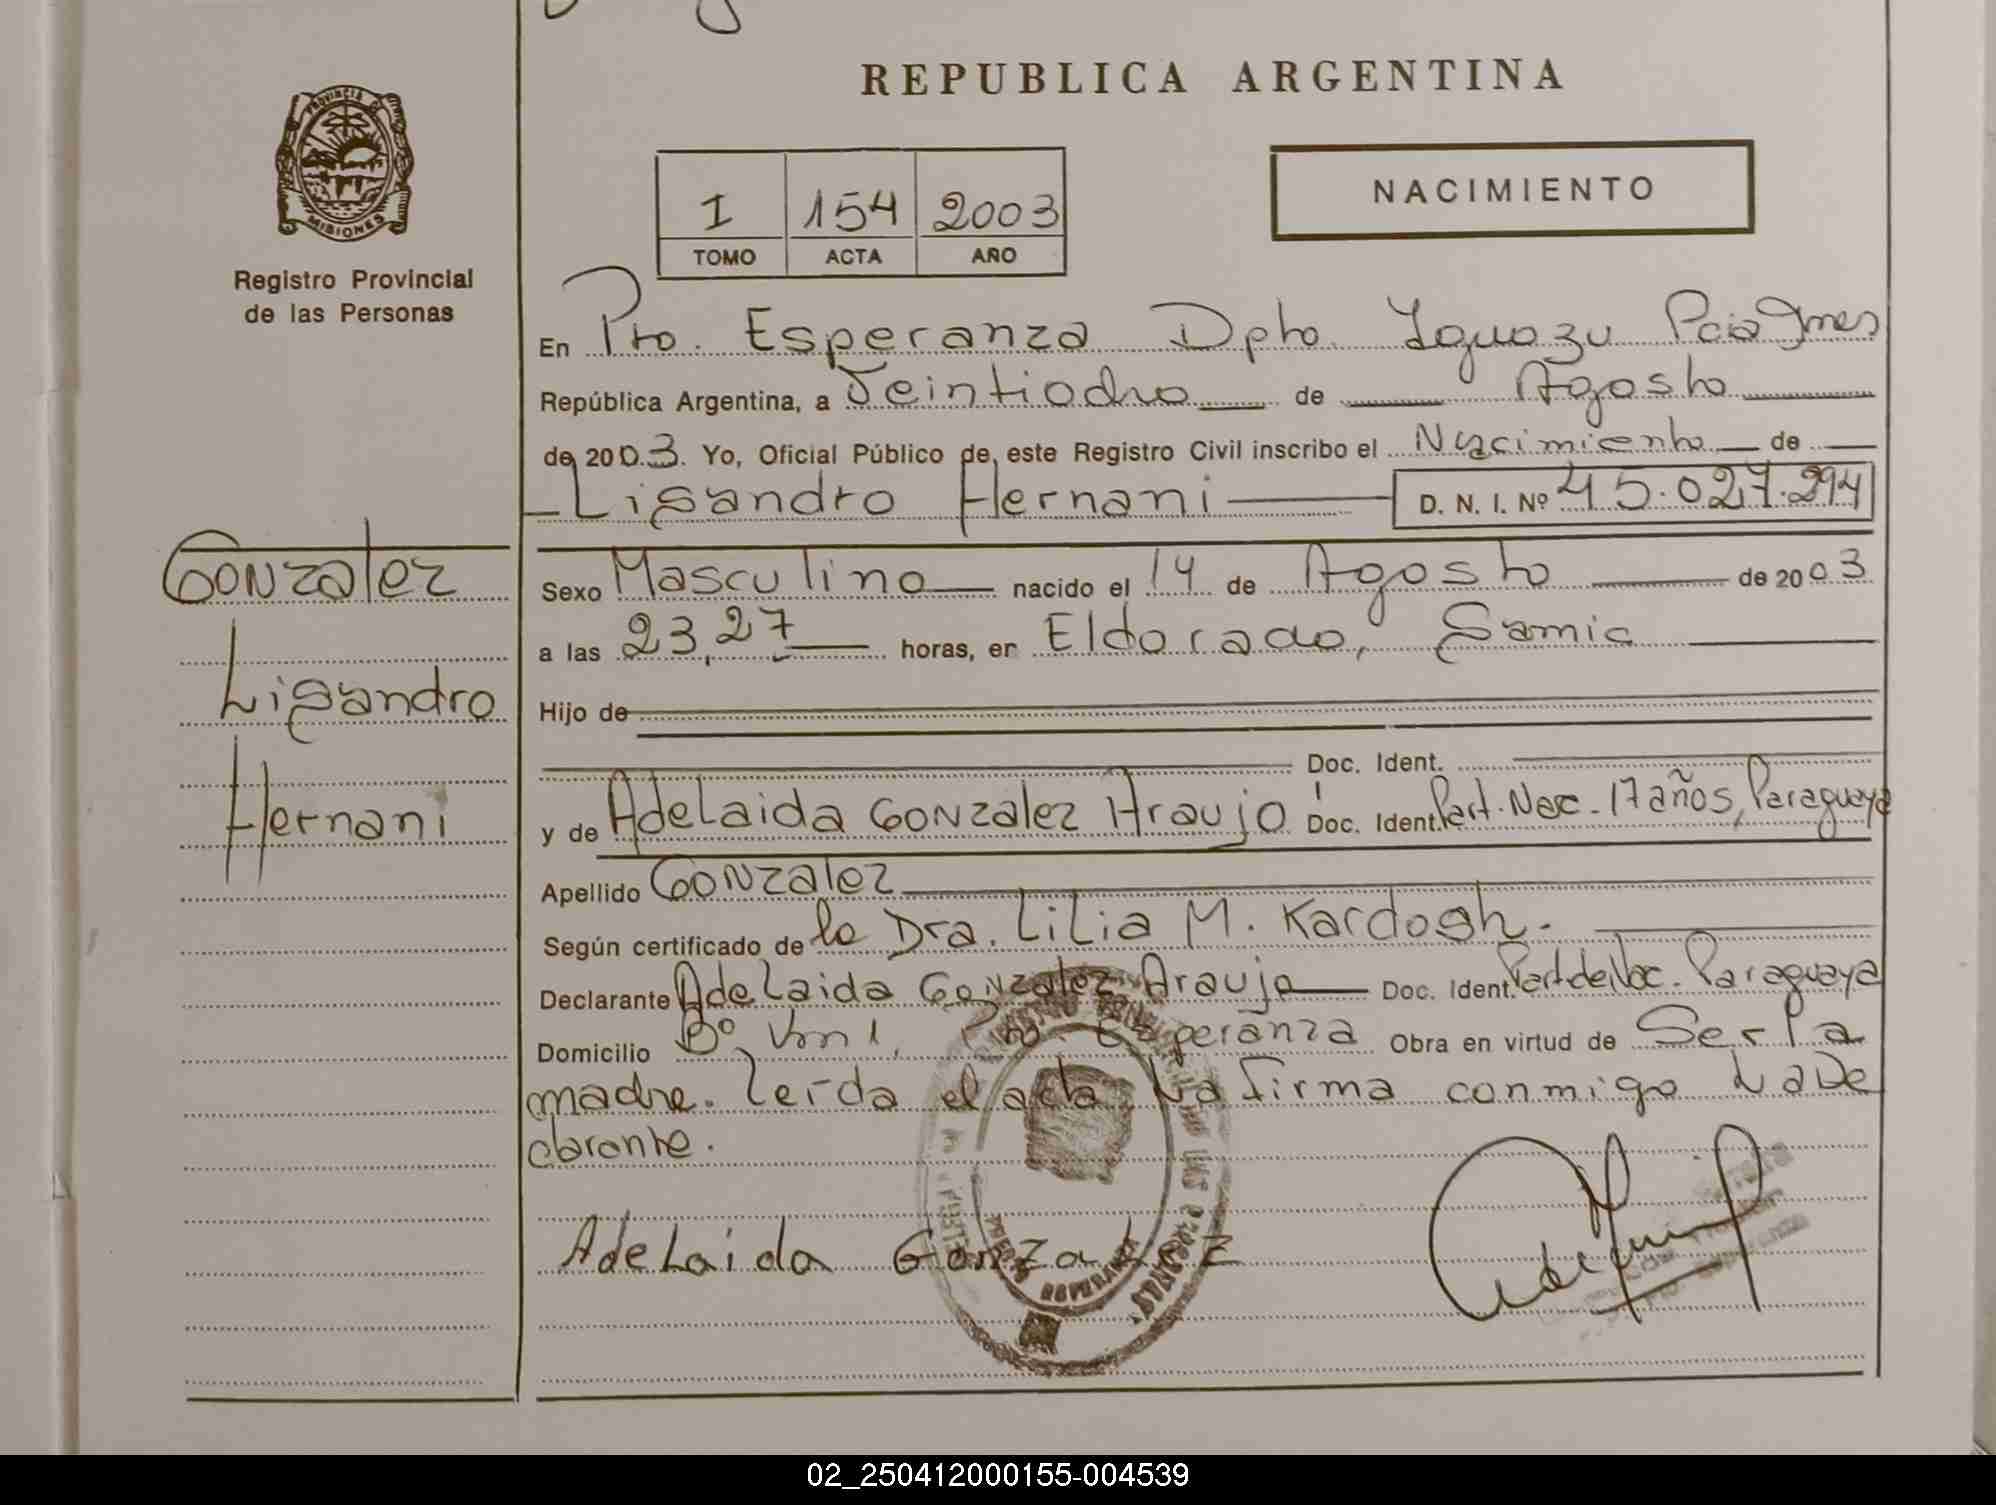 REPUBLICA ARGENTINA
PROVINCIA DE
MISIONES
Registro Provincial
de las Personas
I 154 2003
TOMO ACTA AÑO
NACIMIENTO
En Pto. Esperanza Dpto. Iguazu Pcia Mnes
República Argentina, a Veintiocho de Agosto
de 2003. Yo, Oficial Público de este Registro Civil inscribo el Nacimiento de
Lisandro Hernani D. N. I. Nº 45.027.294
Gonzalez
Lisandro
Hernani
Sexo Masculino nacido el 14 de Agosto de 2003
a las 23,27 horas, en Eldorado, Samic
Hijo de
Doc. Ident.
y de Adelaida Gonzalez Araujo Doc. Ident. Part. Nac. 17 años, Paraguaya
Apellido Gonzalez
Según certificado de la Dra. Lilia M. Kardosh.
Declarante Adelaida Gonzalez Araujo Doc. Ident. Part de Nac. Paraguaya
Domicilio Bº Pto. Esperanza Obra en virtud de Ser la
madre. Leída el acta la firma conmigo La De
clarante.
Adelaida Gonzalez
PUERTO ESPERANZA
02_250412000155-004539